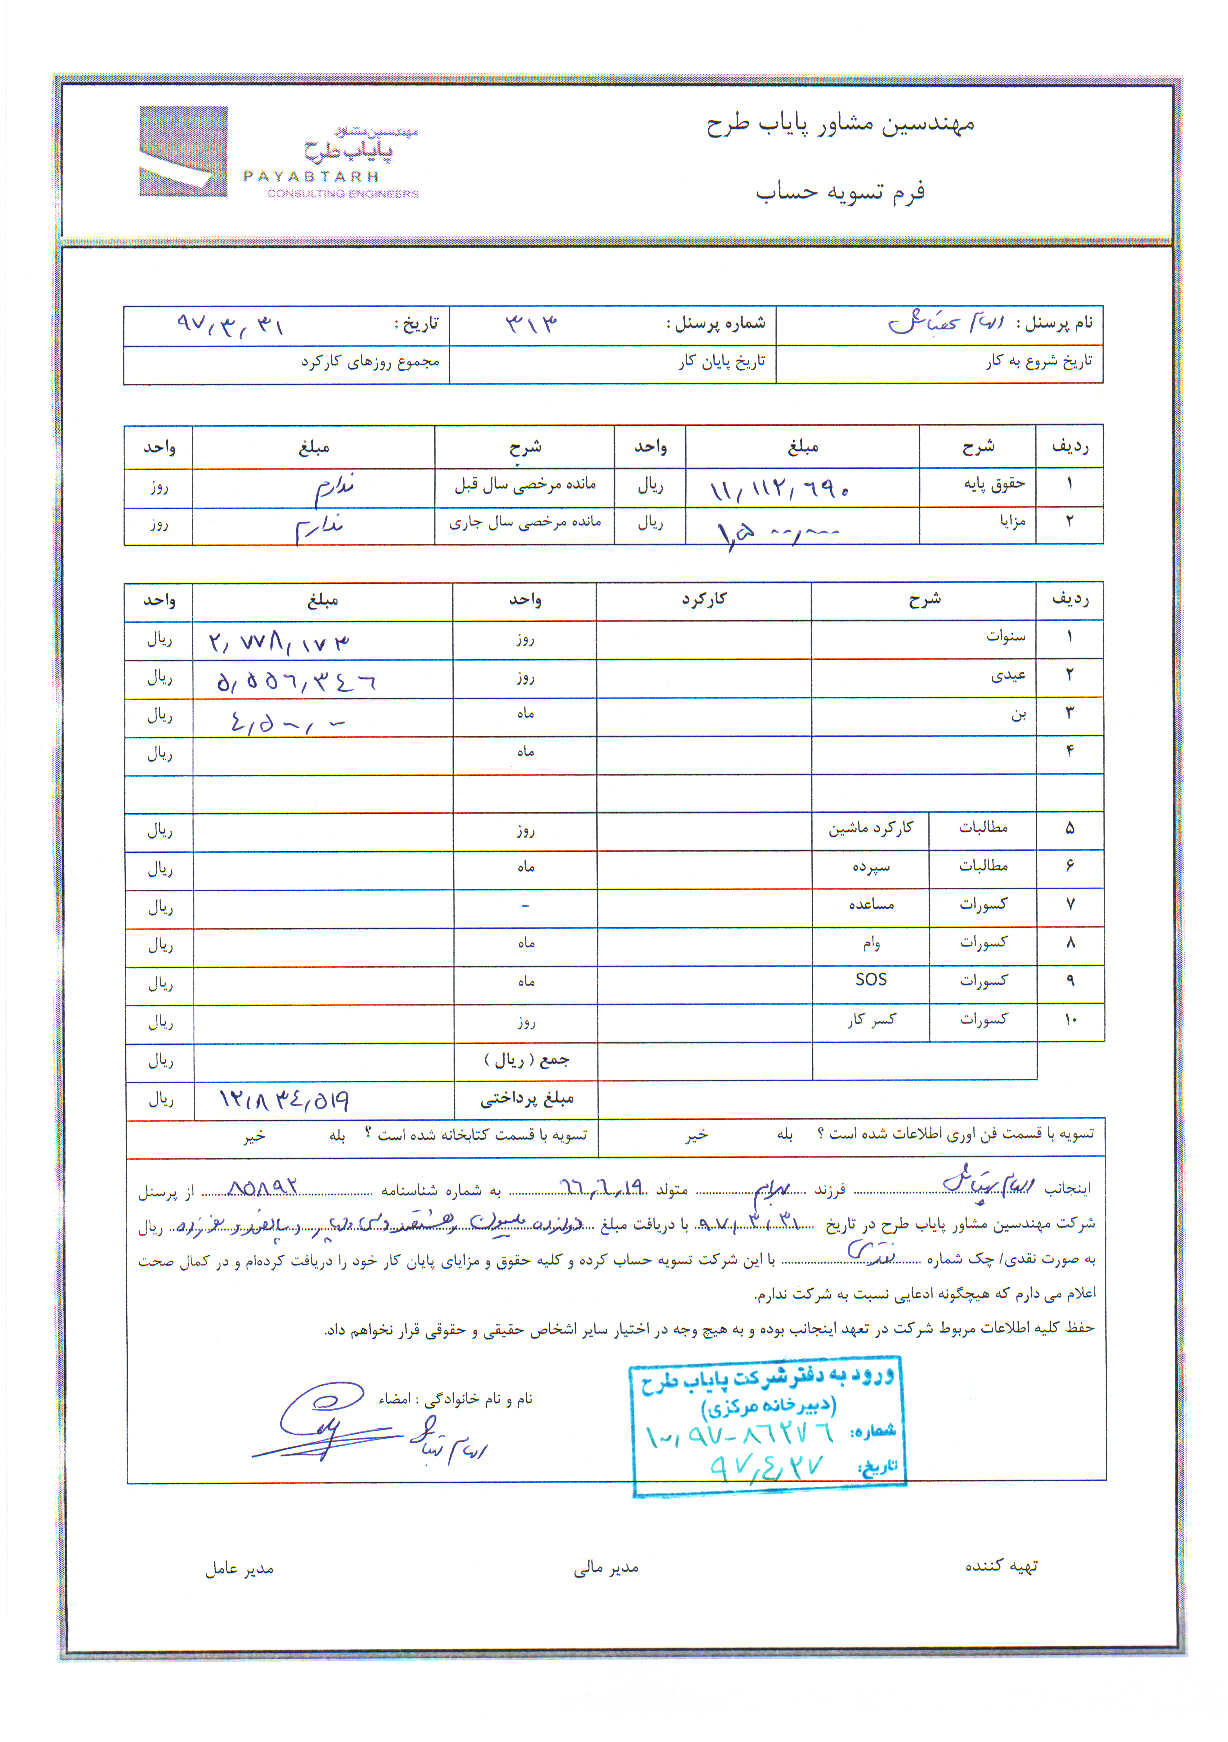 مهندسین مشاور پایاب طرح
فرم تسویه حساب
مهندسین مشاور
پایاب طرح
PAYABTARH
CONSULTING ENGINEERS
نام پرسنل : الهام شماره پرسنل : ۳۱۳ تاریخ : ۹۷/۳/۳۱
تاریخ شروع به کار تاریخ پایان کار مجموع روزهای کارکرد
ردیف شرح مبلغ واحد شرح مبلغ واحد
۱ حقوق پایه ۱۱,۱۱۲,۶۹۰ ریال مانده مرخصی سال قبل ندارم روز
۲ مزایا ۱,۵۰۰,۰۰۰ ریال مانده مرخصی سال جاری ندارم روز
ردیف شرح کارکرد واحد مبلغ واحد
۱ سنوات روز ۲,۷۷۸,۱۷۳ ریال
۲ عیدی روز ۵,۵۵۶,۳۴۶ ریال
۳ بن ماه ۴,۵۰۰,۰۰۰ ریال
۴ ماه ریال
۵ مطالبات کارکرد ماشین روز ریال
۶ مطالبات سپرده ماه ریال
۷ کسورات مساعده - ریال
۸ کسورات وام ماه ریال
۹ کسورات SOS ماه ریال
۱۰ کسورات کسر کار روز ریال
جمع ( ریال ) ریال
مبلغ پرداختی ۱۲,۸۳۴,۵۱۹ ریال
تسویه با قسمت فن اوری اطلاعات شده است ؟ بله خیر تسویه با قسمت کتابخانه شده است ؟ بله خیر
اینجانب الهام فرزند بهرام متولد ۶۶,۶,۱۹ به شماره شناسنامه ۸۵۸۹۲ از پرسنل
شرکت مهندسین مشاور پایاب طرح در تاریخ ۹۷/۳/۳۱ با دریافت مبلغ دوازده میلیون و هشتصد و سی و چهار و پانصد و نوزده ریال
به صورت نقدی/ چک شماره نقدی با این شرکت تسویه حساب کرده و کلیه حقوق و مزایای پایان کار خود را دریافت کرده‌ام و در کمال صحت
اعلام می دارم که هیچگونه ادعایی نسبت به شرکت ندارم.
حفظ کلیه اطلاعات مربوط شرکت در تعهد اینجانب بوده و به هیچ وجه در اختیار سایر اشخاص حقیقی و حقوقی قرار نخواهم داد.
نام و نام خانوادگی : امضاء
الهام
ورود به دفتر شرکت پایاب طرح
(دبیرخانه مرکزی)
شماره: ۱۰,۹۷-۸۶۲۷۶
تاریخ: ۹۷,۴,۲۷
تهیه کننده مدیر مالی مدیر عامل